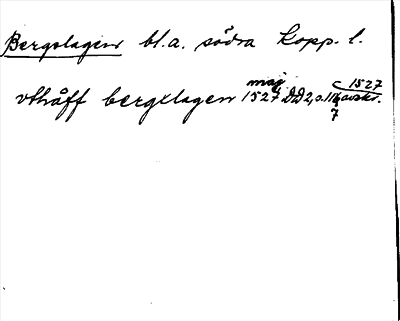 Bergslagen bl.a. södra Kopp. l.
vthåff bergxlagen maj 1527 DD2, s. c 1527 avskr.
7